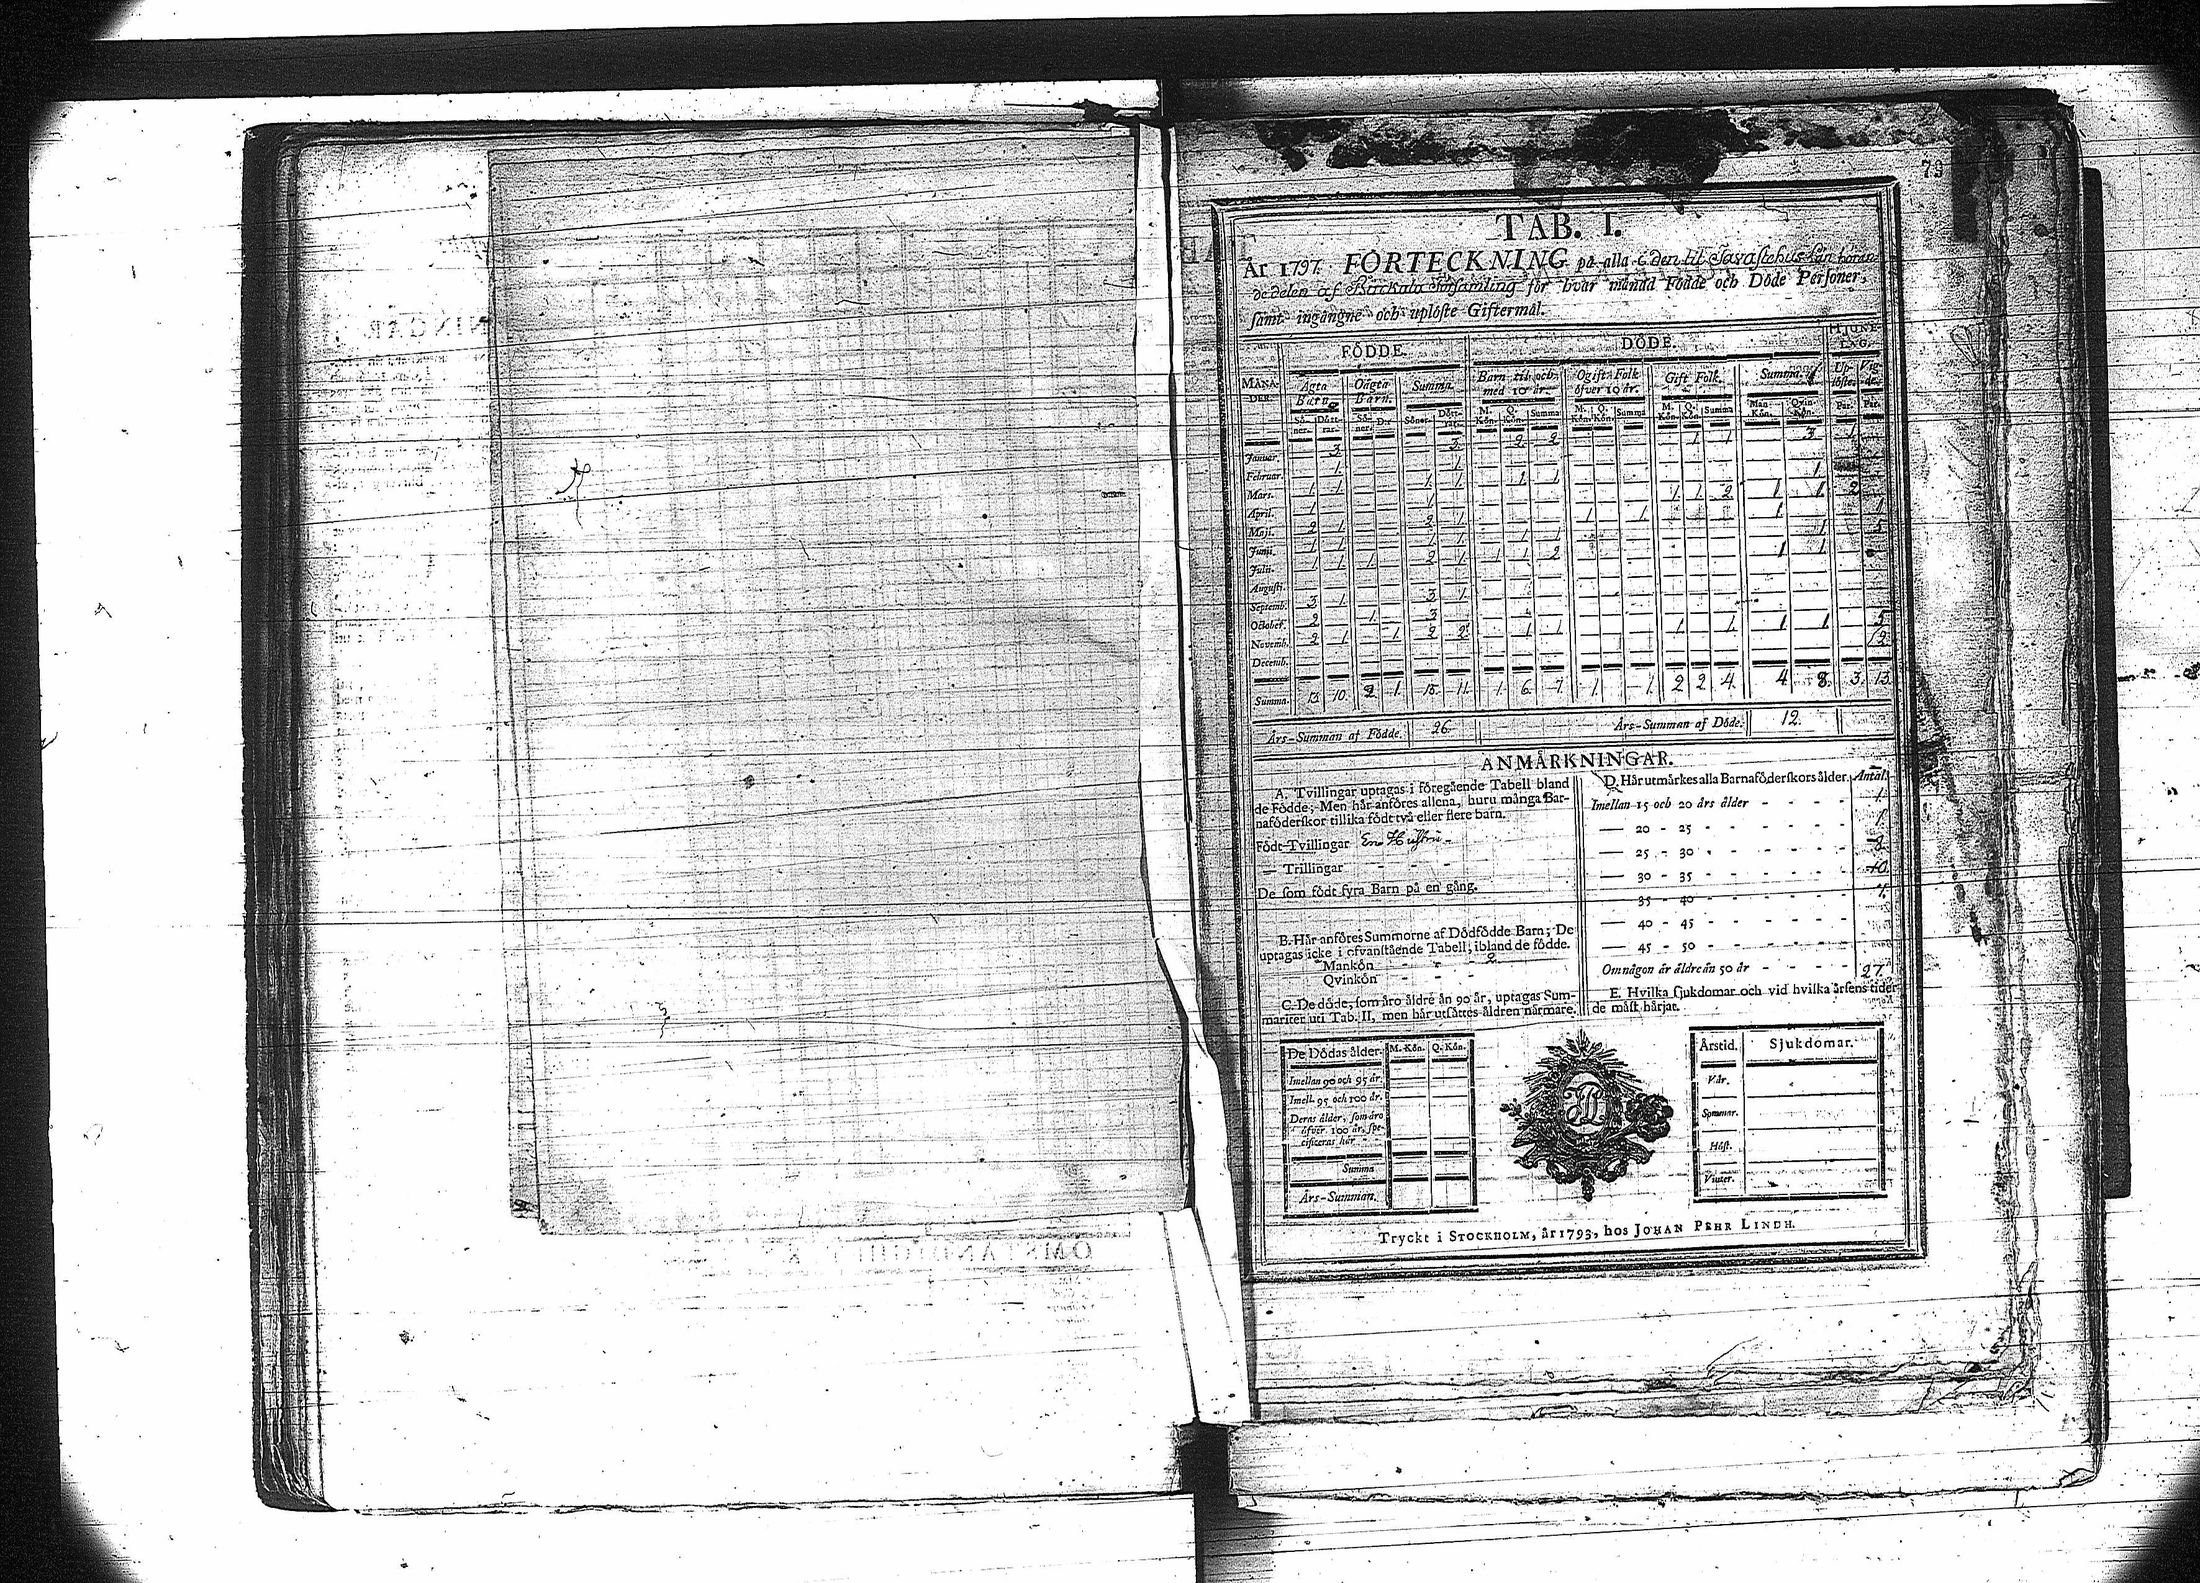 79
TAB. I.
År 1797. FÖRTECKNING på alla i den til Tavastehus Län hörande
delen af Birckala Församling för hvar månad Födde och Döde Personer,
samt ingångne och uplöste Giftermål.
FÖDDE. DÖDE.
MÅNADER. Ägta Barn. Oägta Barn. Summa. Barn til och med 10 år. Ogift Folk öfver 10 år. Gift Folk. Summa. Uplöste. Vigde.
Söner. Döttrar. Söner. D:r Söner. Döttrar. M. Kön. Q. Kön. Summa M. Kön. Q. Kön. Summa M. Kön. Q. Kön. Summa Man-Kön. Qvin-Kön. Par. Par.
Januar. 3 3 2 2 1 1 3 1
Februar. 1 1
Mars. 1 1 1 1 1 1 1
April. 1 1 1 1 2 1 1 2
Maji. 2 1 1 1 1 1 1
Junii. 1 1 1 1 1 1 1 5
Julii. 1 1 1 2 1 1 1 2 1 1
Augusti.
Septemb. 3 1 3 1
October. 2 1 3
Novemb. 2 1 1 2 2 1 1 1 1 1 1 5
Decemb. 2
Summa. 13 10. 2 1. 15. 11. 1. 6. 7. 1 1. 2 2 4. 4 8. 3. 13.
Års-Summan af Födde. 26. Års-Summan af Döde. 12.
ANMÄRKNINGAR.
A. Tvillingar uptagas i föregående Tabell bland
de Födde; Men här anföres allena, huru många Bar-
naföderskor tillika födt två eller flere barn.
Födt Tvillingar En Hustru
— Trillingar - - -
De som födt fyra Barn på en gång.
B. Här anföres Summorne af Dödfödde Barn; De
uptagas icke i ofvanstående Tabell, ibland de födde.
Mankön - - - 2
Qvinkön - -
C. De döde, som äro äldre än 90 år, uptagas Sum-
mariter uti Tab. II, men här utsättes åldren närmare.
D. Här utmärkes alla Barnaföderskors ålder. Antal.
Imellan 15 och 20 års ålder - - - - 1.
— 20 - 25 - - - - - - 1.
— 25 - 30 - - - - - - 8.
— 30 - 35 - - - - - - 10.
— 35 - 40 - - - - - - 7.
— 40 - 45 - - - - - -
— 45 - 50 - - - - - -
Om någon är äldre än 50 år - - - -
27.
E. Hvilka sjukdomar och vid hvilka årsens tider
de mäst härjat.
De Dödas ålder. M. Kön. Q. Kön.
Imellan 90 och 95 år.
Imell. 95 och 100 år.
Deras ålder, som äro
öfver 100 år, spe-
cificeras här - -
Summa
Års-Summan.
Årstid. Sjukdomar.
Vår.
Sommar.
Höst.
Vinter.
Tryckt i STOCKHOLM, år 1793, hos JOHAN PEHR LINDH.